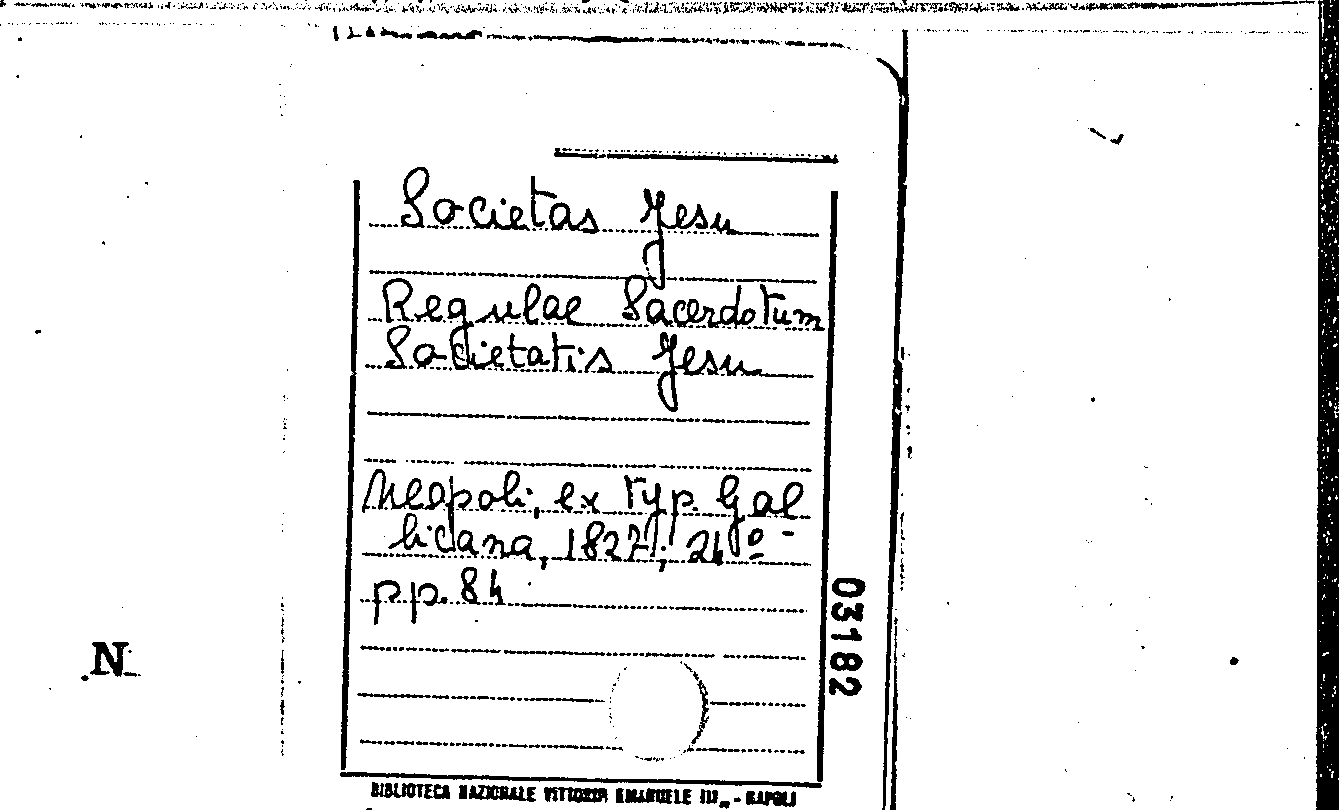 Societas Jesu
Regulae Sacerdotum
Societatis Jesu
Neapoli, ex typ. Gal
licana, 1827; 24º -
pp. 84
03182
N
BIBLIOTECA NAZIONALE VITTORIO EMANUELE III„ - NAPOLI